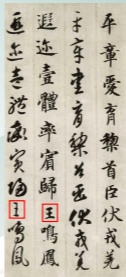 平章愛育黎首臣伏戎羌
平章愛育黎首臣伏戎羌
遐邇壹體率賓歸王鳴鳳
遐邇壹體率賓歸王鳴鳳